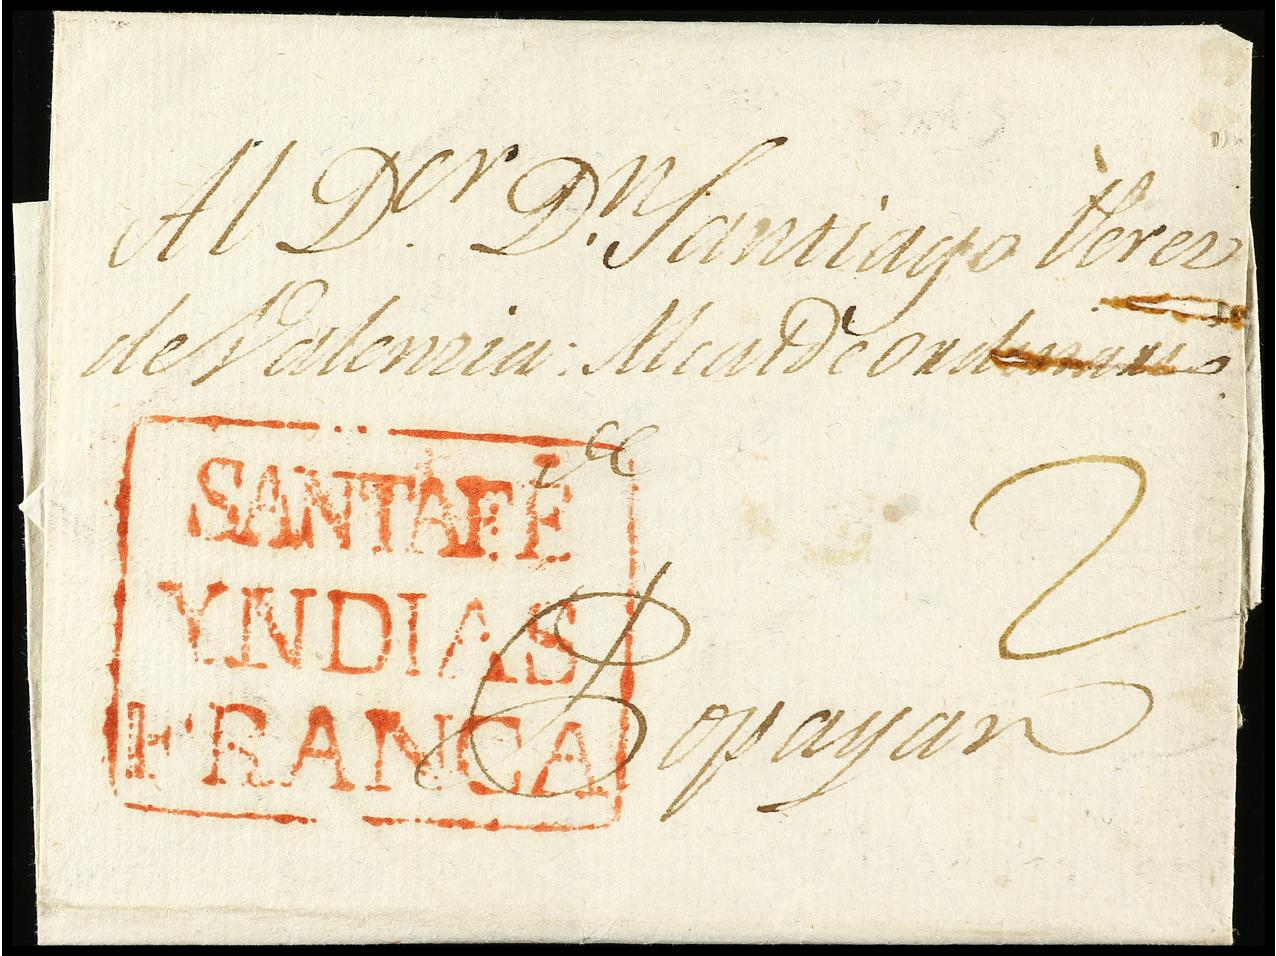 Al D.or D.n Santiago Perez
de Valenzia: Alcalde ordinario
de
SANTAFÉ
YNDIAS
FRANCA
2
Popayan